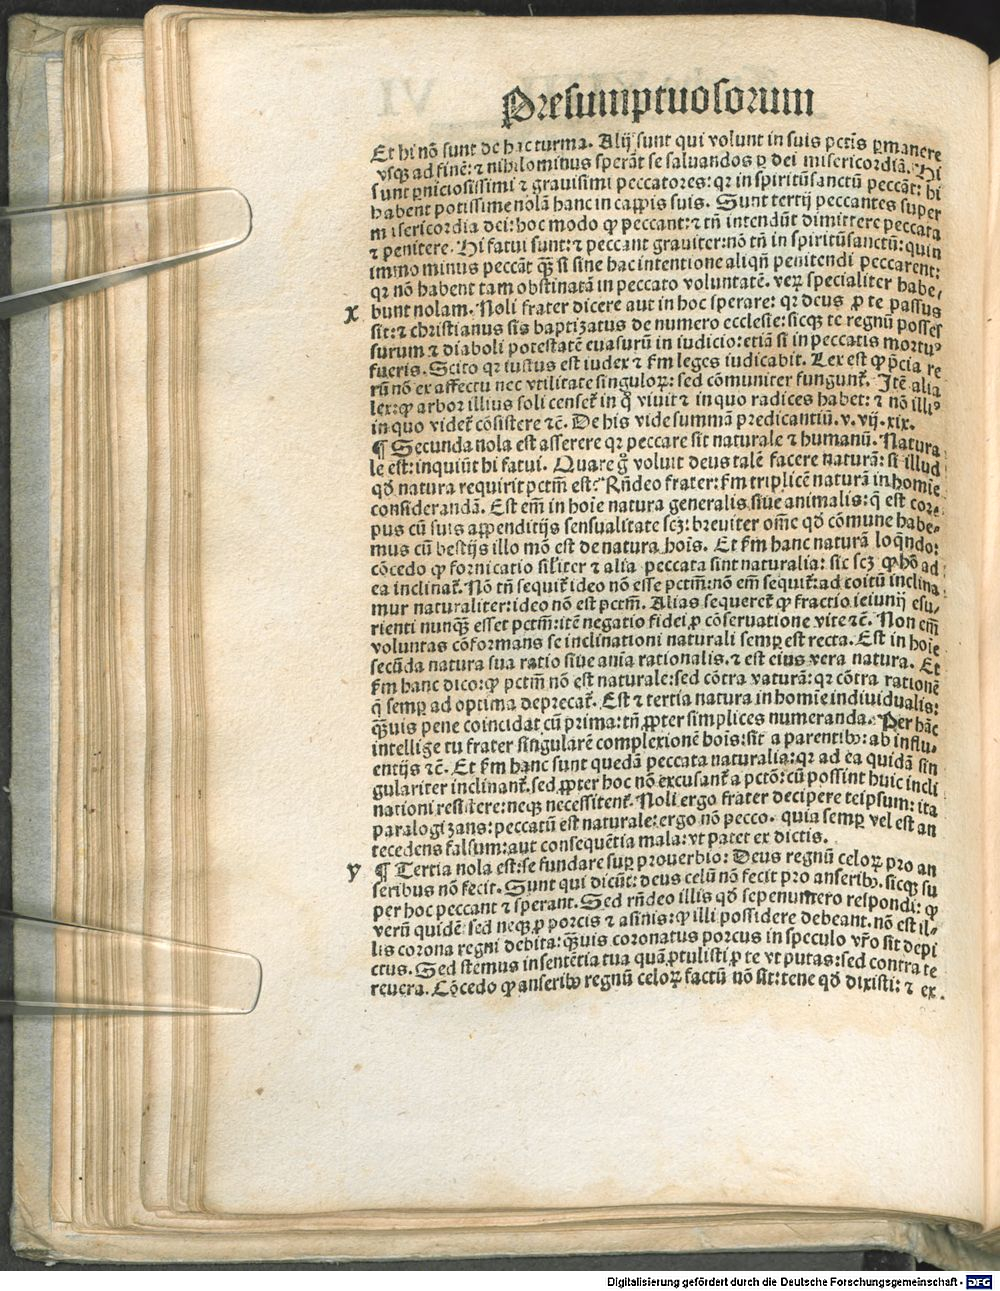 Presumptuosorum
Et hi nō sunt de hac turma. Alij sunt qui volunt in suis pctīs ꝑmanere
vsqꝫ ad finē: ⁊ nihilominus sperāt se saluandos ꝑ dei misericordiā. Hi
sunt ꝑniciosissimi ⁊ grauissimi peccatores: qꝛ in spiritūsanctū peccāt: hi
habent potissime nolā hanc in cappis suis. Sunt tertij peccantes super
misericordia dei: hoc modo ꝙ peccant: ⁊ tn̄ intendūt dimittere peccata
⁊ penitere. Hi fatui sunt: ⁊ peccant grauiter: nō tn̄ in spiritūsanctū: quin
immo minus peccāt qꝫ̄ si sine hac intentione aliqn̄ penitendi peccarent:
qꝛ nō habent tam obstinatā in peccato voluntatē. veꝝ specialiter habe⸗
x bunt nolam. Noli frater dicere aut in hoc sperare: qꝛ deus ꝓ te passus
sit: ⁊ christianus sis baptizatus de numero ecclesie: sicqꝫ te regnū posses
surum ⁊ diaboli potestatē euasurū in iudicio: etiā si in peccatis mortuꝰ
fueris. Scito qꝛ iustus est iudex ⁊ s̄m leges iudicabit. Lex est ꝙ p̄cia re
rū nō ex affectu nec vtilitate singuloꝝ: sed cōmuniter fungunt̄. Itē alia
lex: ꝙ arbor illius soli censet̄ in q̊ viuit ⁊ in quo radices habet: ⁊ nō illiꝰ
in quo videt̄ cōsistere ⁊c̄. De his vide summā predicantiū. v. vij. xix.
¶ Secunda nola est asserere qꝛ peccare sit naturale ⁊ humanū. Natura
le est: inquiūt hi fatui. Quare g̊ voluit deus talē facere naturā: si illud
qd̄ natura requirit pctm̄ est: Rn̄deo frater: s̄m triplicē naturā in homīe
considerandā. Est em̄ in hoīe natura generalis siue animalis: q̄ est cor⸗
pus cū suis appenditijs sensualitate scꝫ: breuiter om̄e qd̄ cōmune habe⸗
mus cū bestijs illo mō est de natura hoīs. Et s̄m hanc naturā loq̄ndo:
cōcedo ꝙ fornicatio sil'iter ⁊ alia peccata sint naturalia: sic scꝫ ꝙ hō ad
ea inclinat̄. Nō tn̄ sequit̄ ideo nō esse pctm̄: nō em̄ sequit̄: ad coitū inclina
mur naturaliter: ideo nō est pctm̄. Alias sequeret̄ ꝙ fractio ieiunij esu⸗
rienti nunqꝫ̄ esset pctm̄: itē negatio fidei ꝓ cōseruatione vite ⁊c̄. Non em̄
voluntas cōformans se inclinationi naturali semꝑ est recta. Est in hoīe
secūda natura sua ratio siue aīa rationalis. ⁊ est eius vera natura. Et
s̄m hanc dico: ꝙ pctm̄ nō est naturale: sed cōtra vaturā: qꝛ cōtra rationē
q̄ semꝑ ad optima deprecat̄. Est ⁊ tertia natura in homīe indiuidualis:
qꝫ̄uis pene coincidat cū prima: tn̄ ꝓpter simplices numeranda. Per hāc
intellige tu frater singularē complexionē hoīs: sit a parentibꝰ: ab influ⸗
entijs ⁊c̄. Et s̄m hanc sunt quedā peccata naturalia: qꝛ ad ea quidā sin
gulariter inclinant̄. sed ꝓpter hoc nō excusant̄ a pctō: cū possint huic incli
nationi resistere: neqꝫ necessitent̄. Noli ergo frater decipere teipsum: ita
paralogizans: peccatū est naturale: ergo nō pecco. quia semꝑ vel est an
tecedens falsum: aut consequētia mala: vt patet ex dictis.
y ¶ Tertia nola est: se fundare suꝑ prouerbio: Deus regnū celoꝝ pro an
seribus nō fecit. Sunt qui dicūt: deus celū nō fecit pro anseribꝰ. sicqꝫ su
per hoc peccant ⁊ sperant. Sed rn̄deo illis qd̄ sepenumero respondi: ꝙ
verū quidē: sed neqꝫ ꝓ porcis ⁊ asinis: ꝙ illi possidere debeant. nō est il⸗
lis corona regni debita: qꝫ̄uis coronatus porcus in speculo vr̄o sit depi
ctus. Sed stemus in sentētia tua quā ꝓtulisti ꝓ te vt putas: sed contra te
reuera. Cōcedo ꝙ anseribꝰ regnū celoꝝ factū nō sit: tene qd̄ dixisti: ⁊ ex
Digitalisierung gefördert durch die Deutsche Forschungsgemeinschaft - DFG